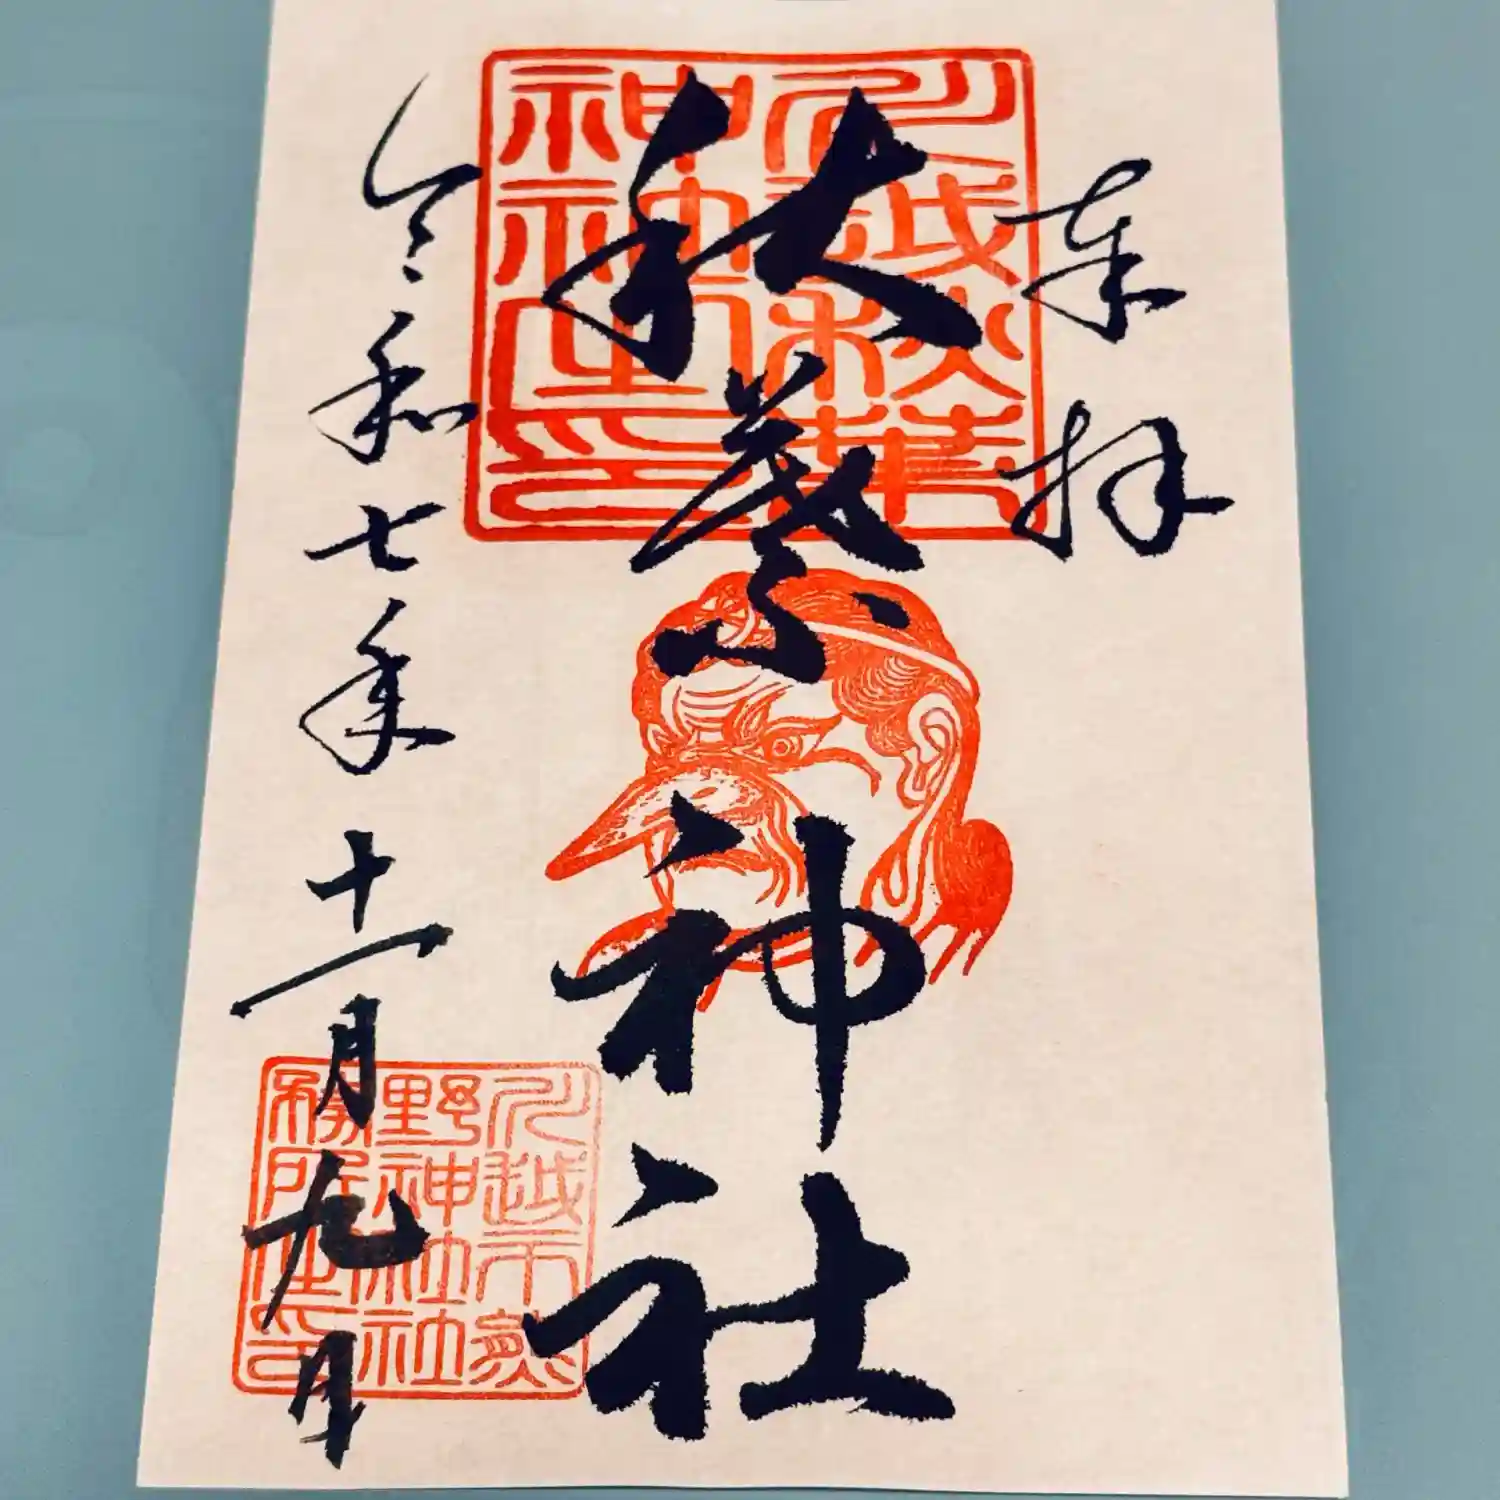 奉拝
秋葉神社
令和七年十一月九日
川越秋葉
神社印
川越市熊
野神社社
務所之印